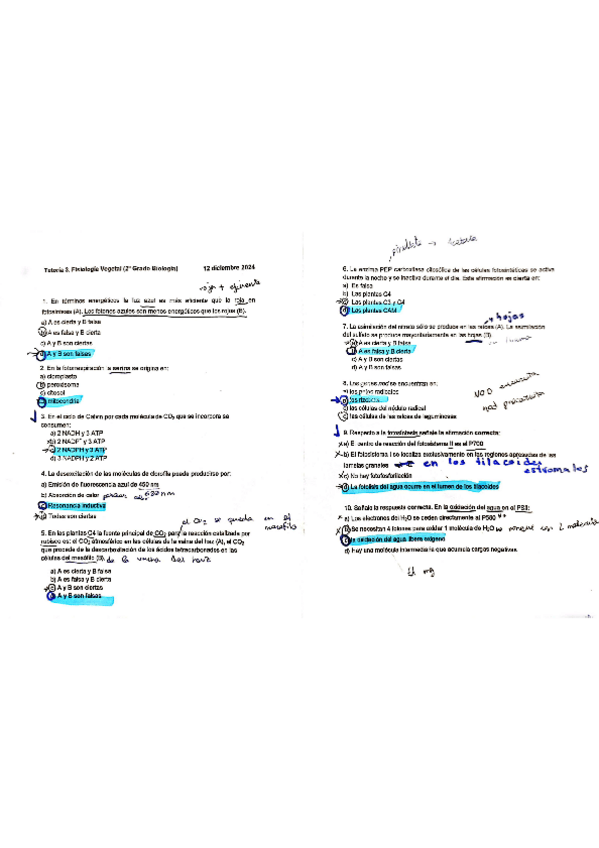 Tutoria 3. Fisiología Vegetal (2º Grado Biología) 12 diciembre 2024
rojo + eficiente
1. En términos energéticos la luz azul es más eficiente que la roja en
fotosíntesis (A). Los fotones azules son menos energéticos que los rojos (B).
a) A es cierta y B falsa
b) A es falsa y B cierta
c) A y B son ciertas
d) A y B son falsas
2. En la fotorrespiración la serina se origina en:
a) cloroplasto
b) peroxisoma
c) citosol
d) mitocondria
3. En el ciclo de Calvin por cada molécula de CO2 que se incorpora se
consumen:
a) 2 NADH y 3 ATP
b) 2 NADP+ y 3 ATP
c) 2 NADPH y 3 ATP
d) 3 NADPH y 2 ATP
4. La desexcitación de las moléculas de clorofila puede producirse por:
a) Emisión de fluorescencia azul de 450 nm
b) Absorción de calor
c) Resonancia inductiva
d) Todas son ciertas
el CO2 se queda en el mesófilo
5. En las plantas C4 la fuente principal de CO2 para la reacción catalizada por
rubisco es: el CO2 atmosférico en las células de la vaina del haz (A), el CO2
que procede de la descarboxilación de los ácidos tetracarbonados en las
células del mesófilo (B). de la vaina del haz
a) A es cierta y B falsa
b) A es falsa y B cierta
c) A y B son ciertas
d) A y B son falsas
6. La enzima PEP carboxilasa citosólica de las células fotosintéticas se activa
durante la noche y se inactiva durante el día. Esta afirmación es cierta en:
a) Es falsa
b) Las plantas C4
c) Las plantas C3 y C4
d) Las plantas CAM
hojas
7. La asimilación del nitrato sólo se produce en las raíces (A). La asimilación
del sulfato se produce mayoritariamente en las hojas (B).
a) A es cierta y B falsa
b) A es falsa y B cierta
c) A y B son ciertas
d) A y B son falsas
8. Los genes nod se encuentran en:
a) los pelos radicales
b) los rizobios
c) las células del nódulo radical
d) las células de las raíces de leguminosas
9. Respecto a la fotosíntesis señale la afirmación correcta:
a) El centro de reacción del fotosistema II es el P700
b) El fotosistema I se localiza exclusivamente en las regiones apresadas de las
lamelas granales en los tilacoides estromales
c) No hay fotofosforilación
d) La fotolisis del agua ocurre en el lumen de los tilacoides
10. Señale la respuesta correcta. En la oxidación del agua en el PSII:
a) Los electrones del H2O se ceden directamente al P680
b) Se necesitan 4 fotones para oxidar 1 molécula de H2O
c) la oxidación del agua libera oxígeno
d) Hay una molécula intermediaria que acumula cargas negativas.